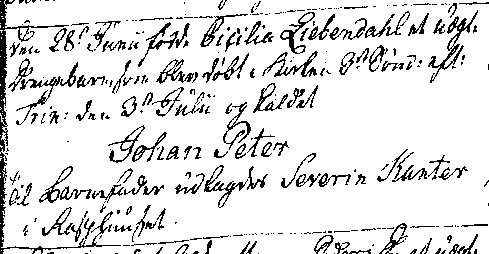 Den 28de Junii fødde Cicilia Liebendahl et uægte
Drengebarn som blev døbt i Kirken 3de Sønd: eft:
Trin: den 3de Julii og kaldet
Johan Peter
til Barnefader udlagdes Severin Kanter
i Rasphuuset.
et uægte